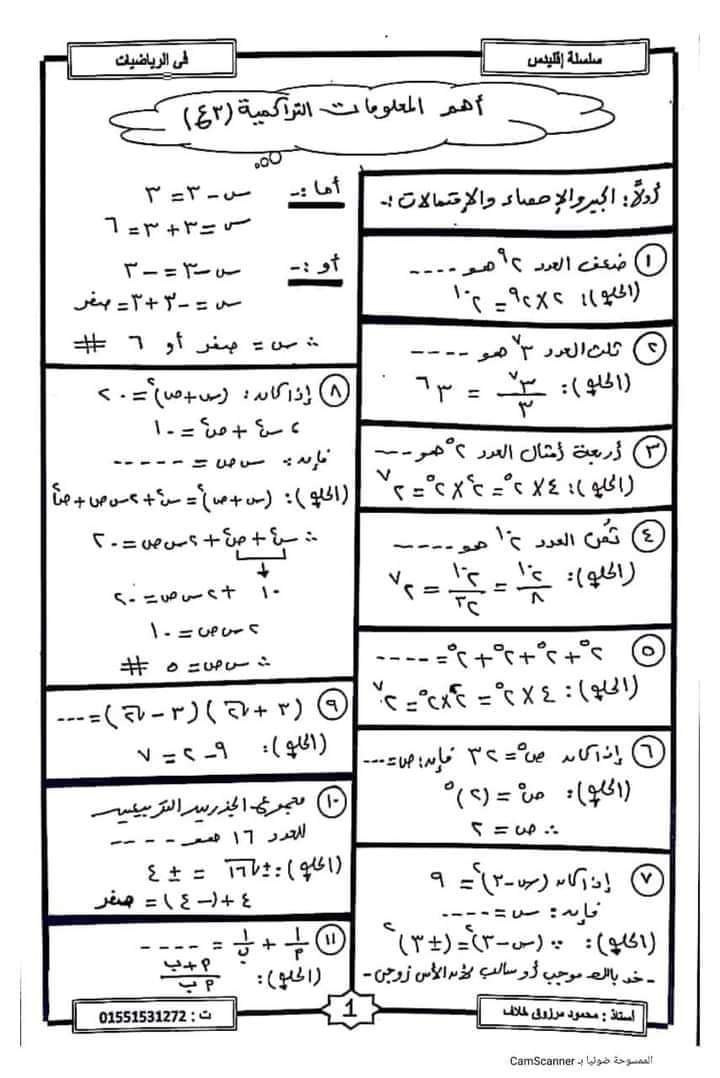 سلسلة إقليدس
فى الرياضيات
أهم المعلومات التراكمية (٣ع)
أولاً: الجبر والإحصاء والإحتمالات :-
١ ضعف العدد ٢⁹ هو ----
(الحلو): ٢ × ٢⁹ = ٢¹⁰
٢ ثلث العدد ٣⁷ هو ----
(الحلو): ٣⁷/٣ = ٣⁶
٣ أربعة أمثال العدد ٢⁵ هو ----
(الحلو): ٤ × ٢⁵ = ٢² × ٢⁵ = ٢⁷
٤ ثُمن العدد ٢¹⁰ هو ----
(الحلو): ٢¹⁰/٨ = ٢¹⁰/٢³ = ٢⁷
٥ ٢⁵ + ٢⁵ + ٢⁵ + ٢⁵ = ----
(الحلو): ٤ × ٢⁵ = ٢² × ٢⁵ = ٢⁷
٦ إذا كان ص⁵ = ٣٢ فإن: ص = ---
(الحلو): ص⁵ = (٢)⁵
∴ ص = ٢
٧ إذا كان (س - ٣)² = ٩
فإن: س = ----
(الحلو): ∵ (س - ٣)² = (± ٣)²
- خد بالك موجب أو سالب لأن الأس زوجى -
أما :- س - ٣ = ٣
س = ٣ + ٣ = ٦
أو :- س - ٣ = - ٣
س = - ٣ + ٣ = صفر
∴ س = صفر أو ٦ #
٨ إذا كان: (س + ص)² = ٢٠
، س² + ص² = ١٠
فإن: س ص = -----
(الحلو): (س + ص)² = س² + ٢ س ص + ص²
∴ س² + ص² + ٢ س ص = ٢٠
١٠ + ٢ س ص = ٢٠
٢ س ص = ١٠
∴ س ص = ٥ #
٩ (٣ + √٢) (٣ - √٢) = ---
(الحلو): ٩ - ٢ = ٧
١٠ مجموع الجذرين التربيعيين
للعدد ١٦ هو ----
(الحلو): ± √١٦ = ± ٤
٤ + (- ٤) = صفر
١١ ١/أ + ١/ب = ----
(الحلو): أ + ب / أ ب
أستاذ : محمود مرزوق خلاف
1
ت : 01551531272
الممسوحة ضوئيا بـ CamScanner